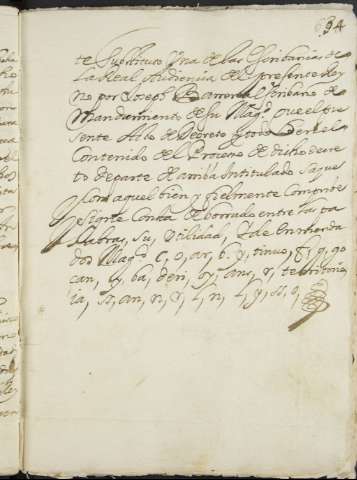 94
te Substituto Una de las Escribanias de
La Real Audiencia del presente Rey
no por Joseph Barrera Escribano de
Mandamiento de su Magd. que el pre
sente Acto de Decreto
Contenido del Proceso de dicho decre
to de parte de arriba Intitulado Saque
Con aquel bien y fielmente Comprove
Signe Consta de borrado entre las pa
labras, su, Vtilidad, Et de Enmenda
dos Magd. C, o, ar, b. y, tinuo, g,
can, ba, deri, ans, r, te
ia, an, n, r, l, n, l, y,